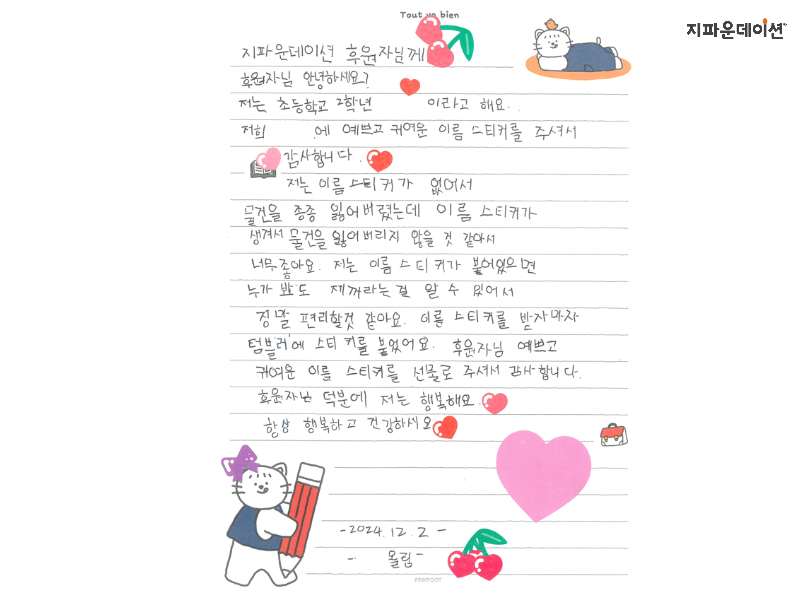 Tout va bien
지파운데이션
지파운데이션 후원자님께
후원자님 안녕하세요?
저는 초등학교 2학년 이라고 해요.
저희 에 예쁘고 귀여운 이름 스티커를 주셔서
감사합니다.
저는 이름 스티커가 없어서
물건을 종종 잃어버렸는데 이름 스티커가
생겨서 물건을 잃어버리지 않을 것 같아서
너무 좋아요. 저는 이름 스티커가 붙어있으면
누가 봐도 제꺼라는걸 알 수 있어서
정말 편리할것 같아요. 이름 스티커를 받자마자
텀블러에 스티커를 붙었어요. 후원자님 예쁘고
귀여운 이름 스티커를 선물로 주셔서 감사합니다.
후원자님 덕분에 저는 행복해요.
항상 행복하고 건강하세요
-2024.12.2-
-. 올림-